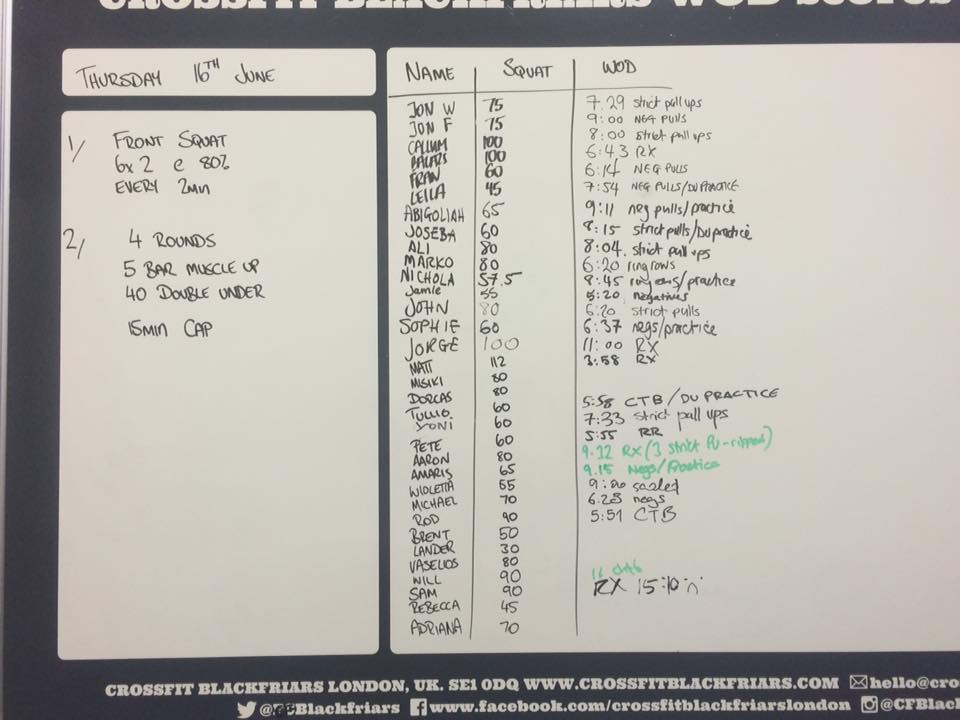 CROSSFIT BLACKFRIARS WOD scores
THURSDAY 16TH JUNE
1/ FRONT SQUAT
6x2 @ 80%
EVERY 2min
2/ 4 ROUNDS
5 BAR MUSCLE UP
40 DOUBLE UNDER
15min CAP
NAME SQUAT WOD
JON W 75 7:29 strict pull ups
JON F 75 9:00 NEG PULLS
CALLUM 100 8:00 strict pull ups
100 6:43 RX
FRAN 60 6:14 NEG PULLS
LEILA 45 7:54 NEG PULLS/DU PRACTICE
ABIGOLIAH 65 9:11 neg pulls/practice
JOSEBA 60 8:15 strict pulls/Du practice
ALI 80 8:04. strict pull ups
MARKO 80 6:20 ring rows
NICHOLA 57.5 8:45 ring rows/practice
Jamie 55 5:20 negatives
JOHN 80 6:20 strict pulls
SOPHIE 60 6:37 negs/practice
JORGE 100 11:00 RX
MATT 112 3:58 RX
MISIKI 80
DORCAS 80 5:58 CTB/DU PRACTICE
TULLIO 60 7:33 strict pull ups
YONI 60 5:55 RR
PETE 60 9.32 RX (3 strict PU-ripped)
AARON 80 9.15 Negs/Practice
AMARIS 65 scaled
WIOLETTA 55 6.28 negs
MICHAEL 70 5:51 CTB
ROD 90
BRENT 50
LANDER 30
VASELIOS 80
WILL 90
SAM 90 RX 15:10
REBECCA 45
ADRIANA 70
CROSSFIT BLACKFRIARS LONDON, UK. SE1 0DQ WWW.CROSSFITBLACKFRIARS.COM hello@cro
@CFBlackfriars www.facebook.com/crossfitblackfriarslondon @CFBlac